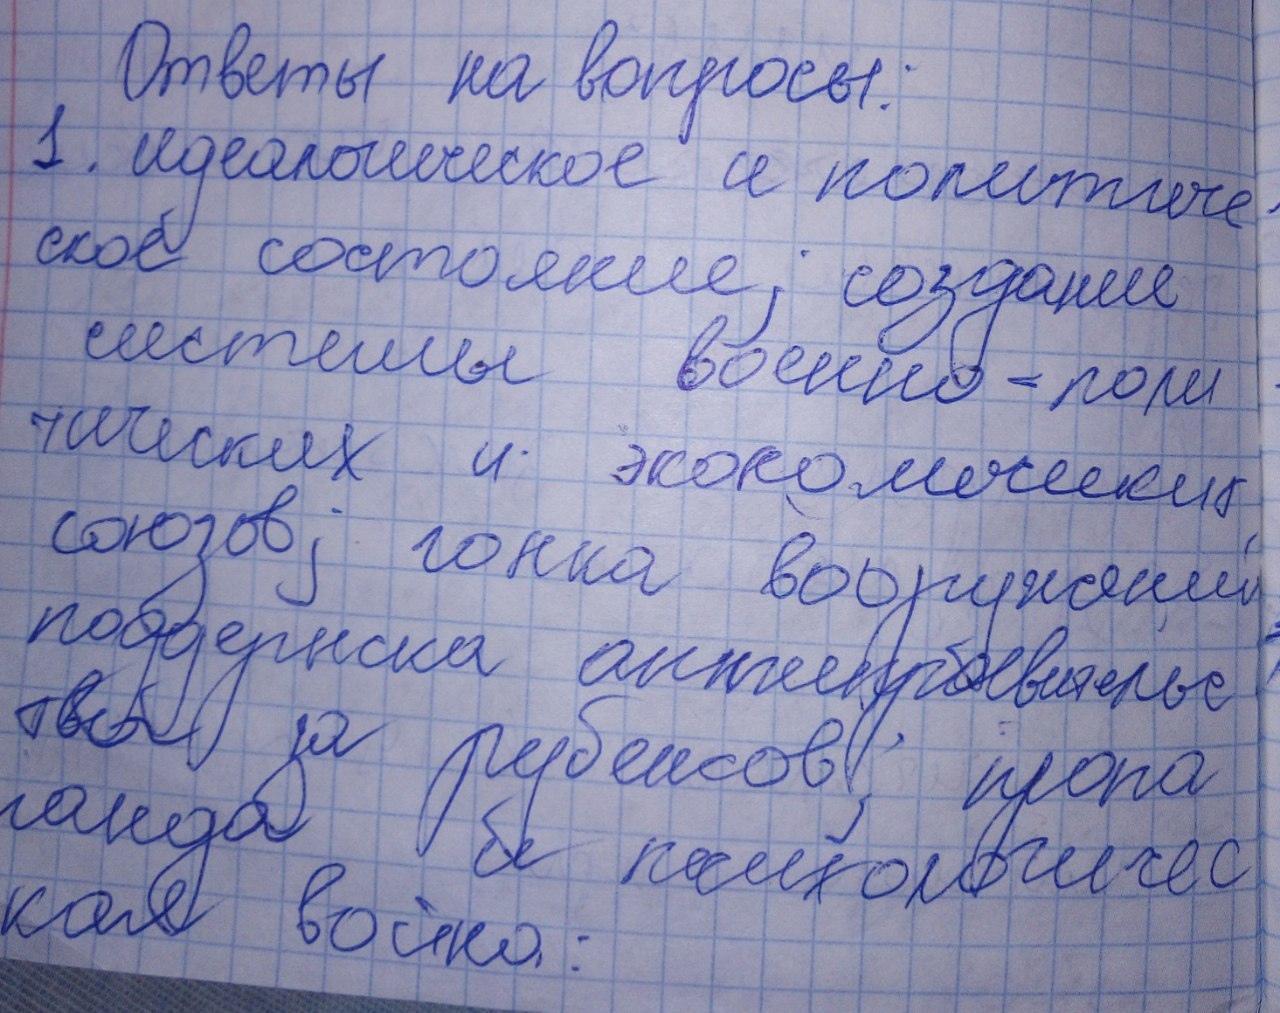 Ответы на вопросы:
1. идеалогическое и политиче
ское состояние; создание
системы военно-поли
тических и экономических
союзов; гонка вооружений
поддержка
за рубежов; пропа
ганда и психологичес
кая война: